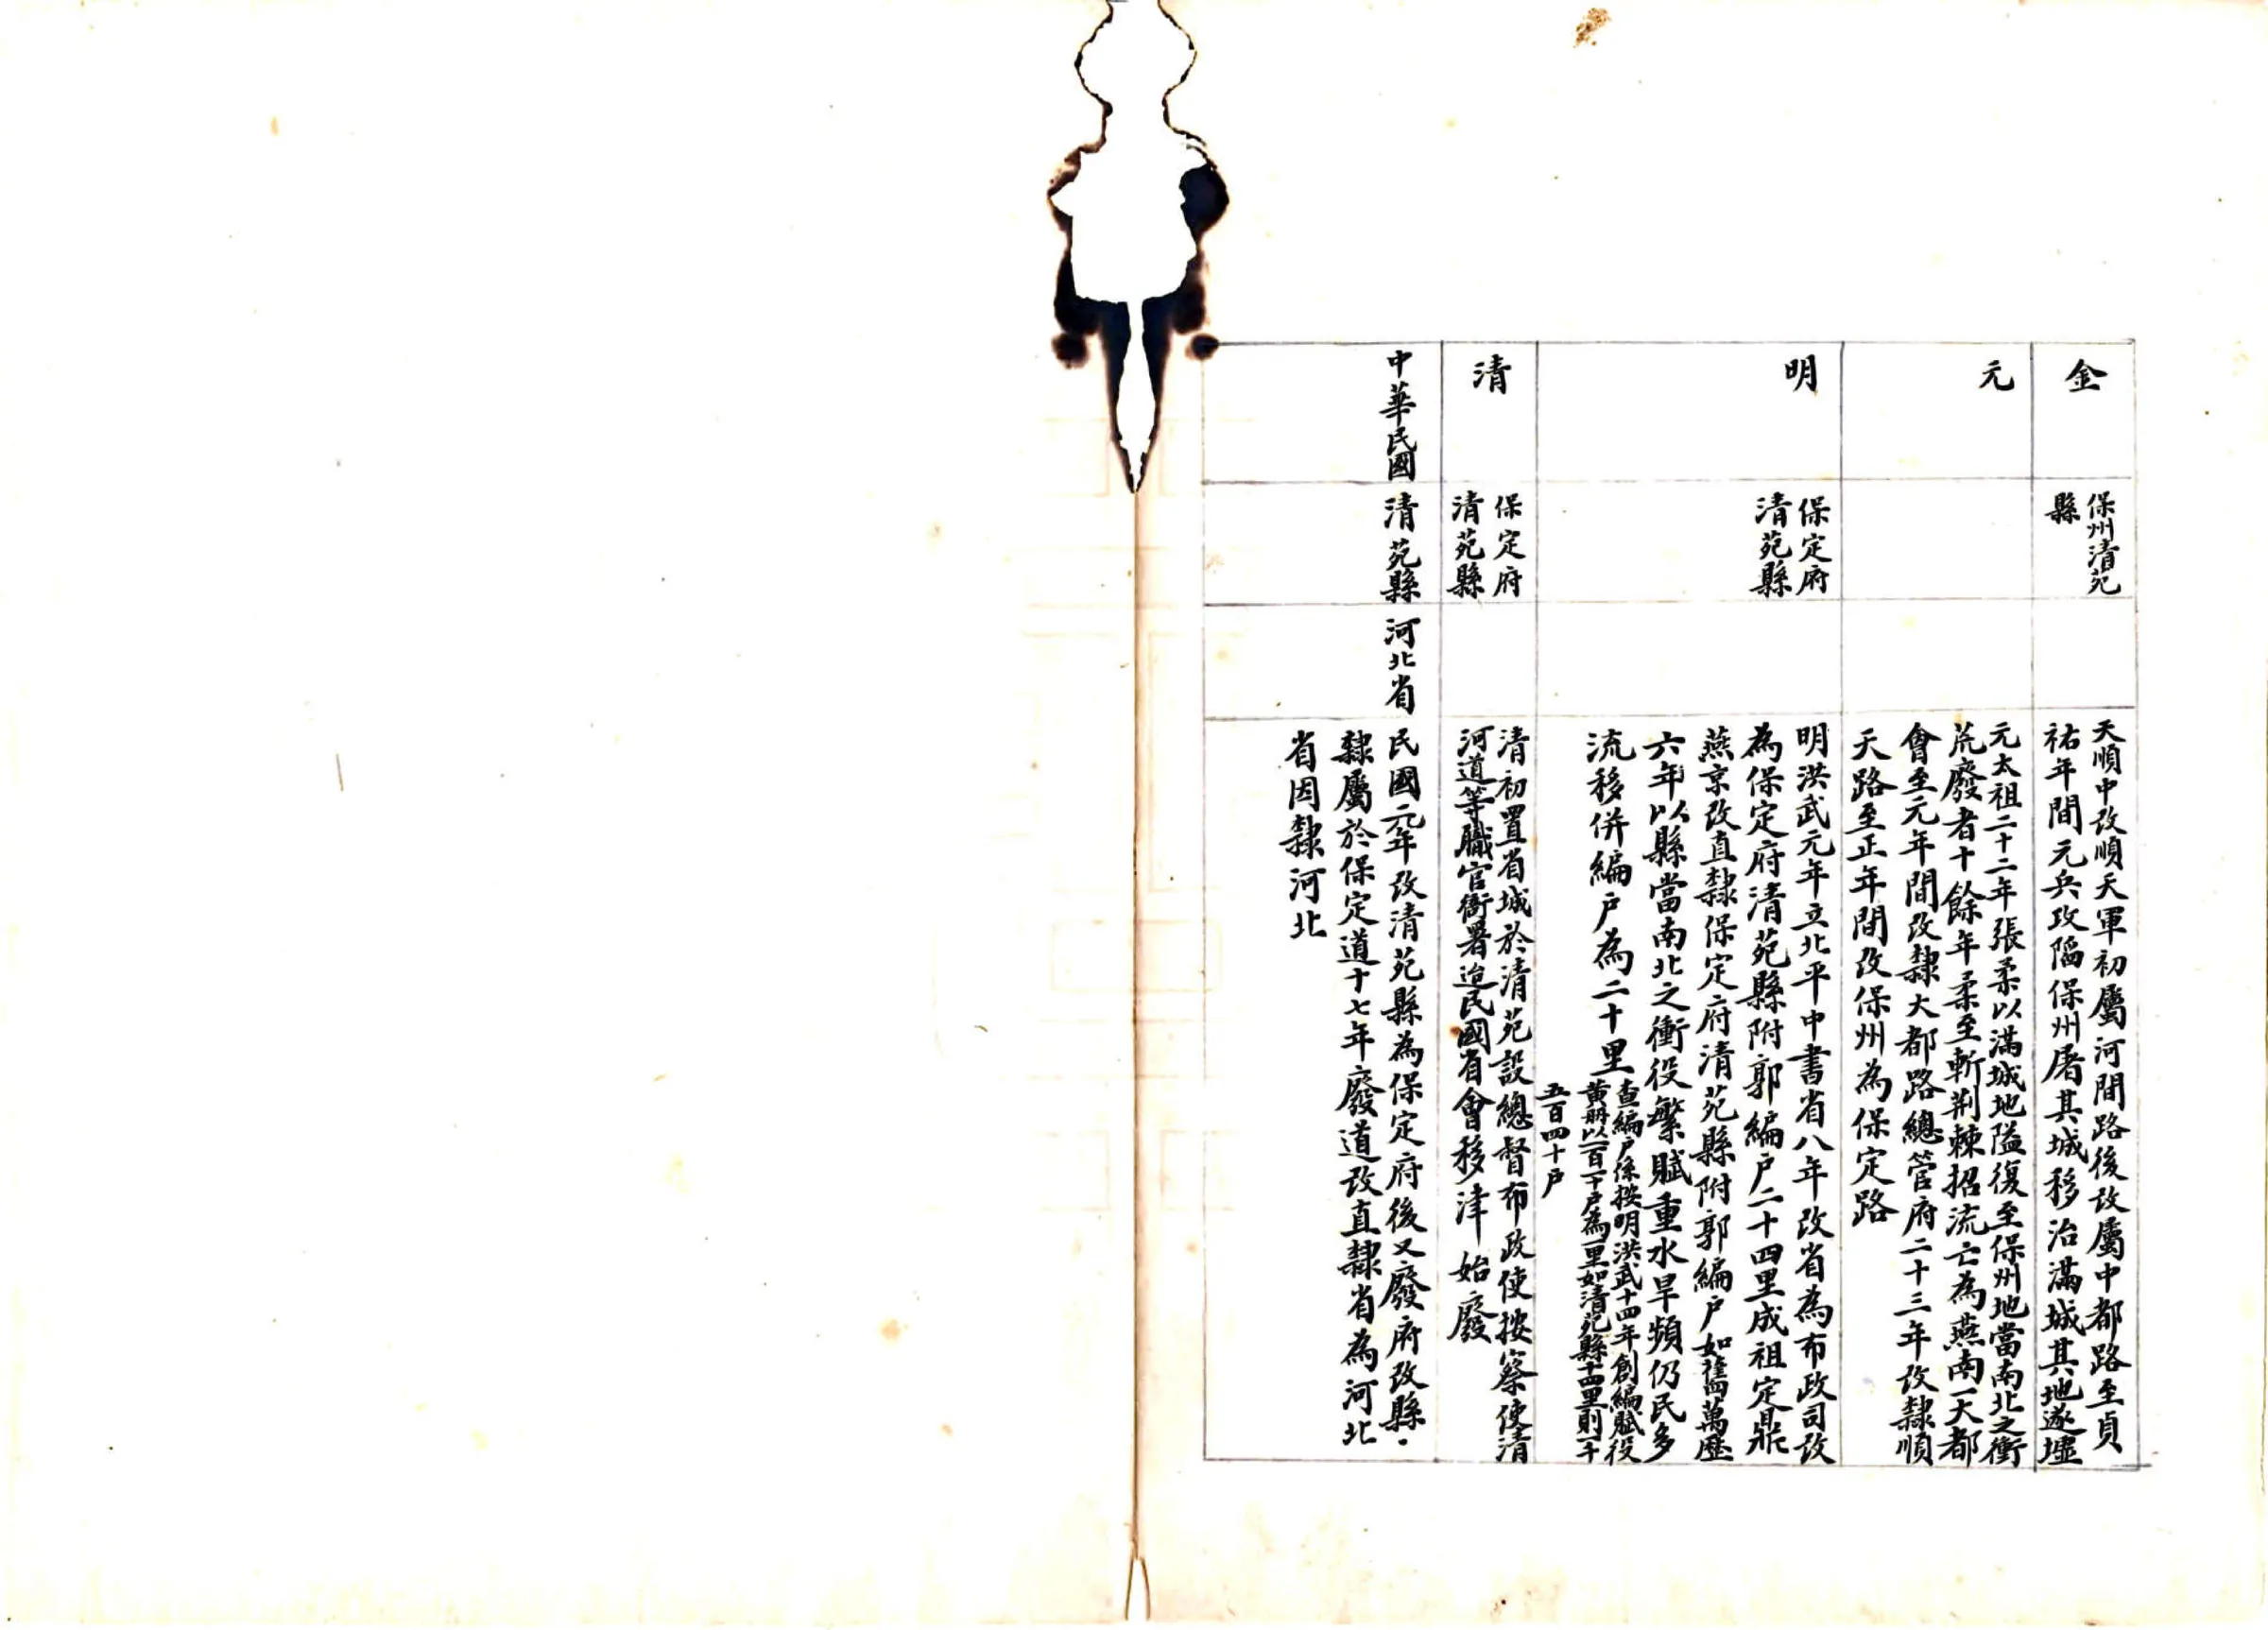 金
保州清苑
縣
天順中改順天軍初屬河間路後改屬中都路至貞
祐年間元兵攻陷保州屠其城移治滿城其地遂墟
元
元太祖二十二年張柔以滿城地隘復至保州地當南北之衝
荒廢者十餘年柔至斬荆棘招流亡為燕南一大都
會至元年間改隸大都路總管府二十三年改隸順
天路至正年間改保州為保定路
明
保定府
清苑縣
明洪武元年立北平中書省八年改省為布政司改
為保定府清苑縣附郭編户二十四里成祖定鼎
燕京改直隸保定府清苑縣附郭編户如舊萬歷
六年以縣當南北之衝役繁賦重水旱頻仍民多
流移併編户為二十里
查編户係按明洪武十四年創編賦役
黃册以一百一十户為一里如清苑縣十四里則一千
五百四十户
清
保定府
清苑縣
清初置省城於清苑設總督布政使按察使清
河道等職官衙署迨民國省會移津始廢
中華民國
清苑縣
河北省
民國元年改清苑縣為保定府後又廢府改縣·
隸屬於保定道十七年廢道改直隸省為河北
省因隸河北